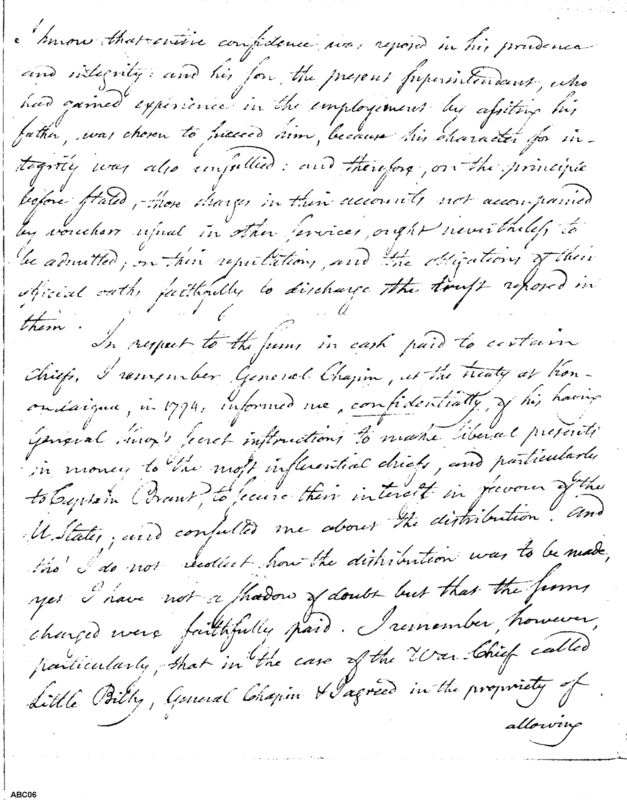 I know that entire confidence was reposed in his prudence
and integrity: and his son, the present Superintendant, who
had gained experience in the employement by assisting his
father, was chosen to succeed him, because his character for in-
tegrity was also unsullied: and therefore, on the principle
before stated, those charges in their accounts not accompanied
by vouchers usual in other services, ought nevertheless to
be admitted, on their reputations, and the obligations of their
official oaths faithfully to discharge the trust reposed in
them.
In respect to the sums in cash paid to certain
chiefs, I remember General Chapin, at the treaty at Kon-
ondaigua, in 1794, informed me, confidentially, of his having
General Knox's secret instructions to make liberal presents
in money to the most influential chiefs, and particularly
to Captain Brant, to secure their interest in favour of the
U. States; and consulted me about the distribution. And
tho' I do not recollect how the distribution was to be made,
yet I have not a shadow of doubt but that the sums
charged were faithfully paid. I remember, however,
particularly, that in the case of the War-Chief called
Little Billy, General Chapin & I agreed in the propriety of
allowing
ABC06